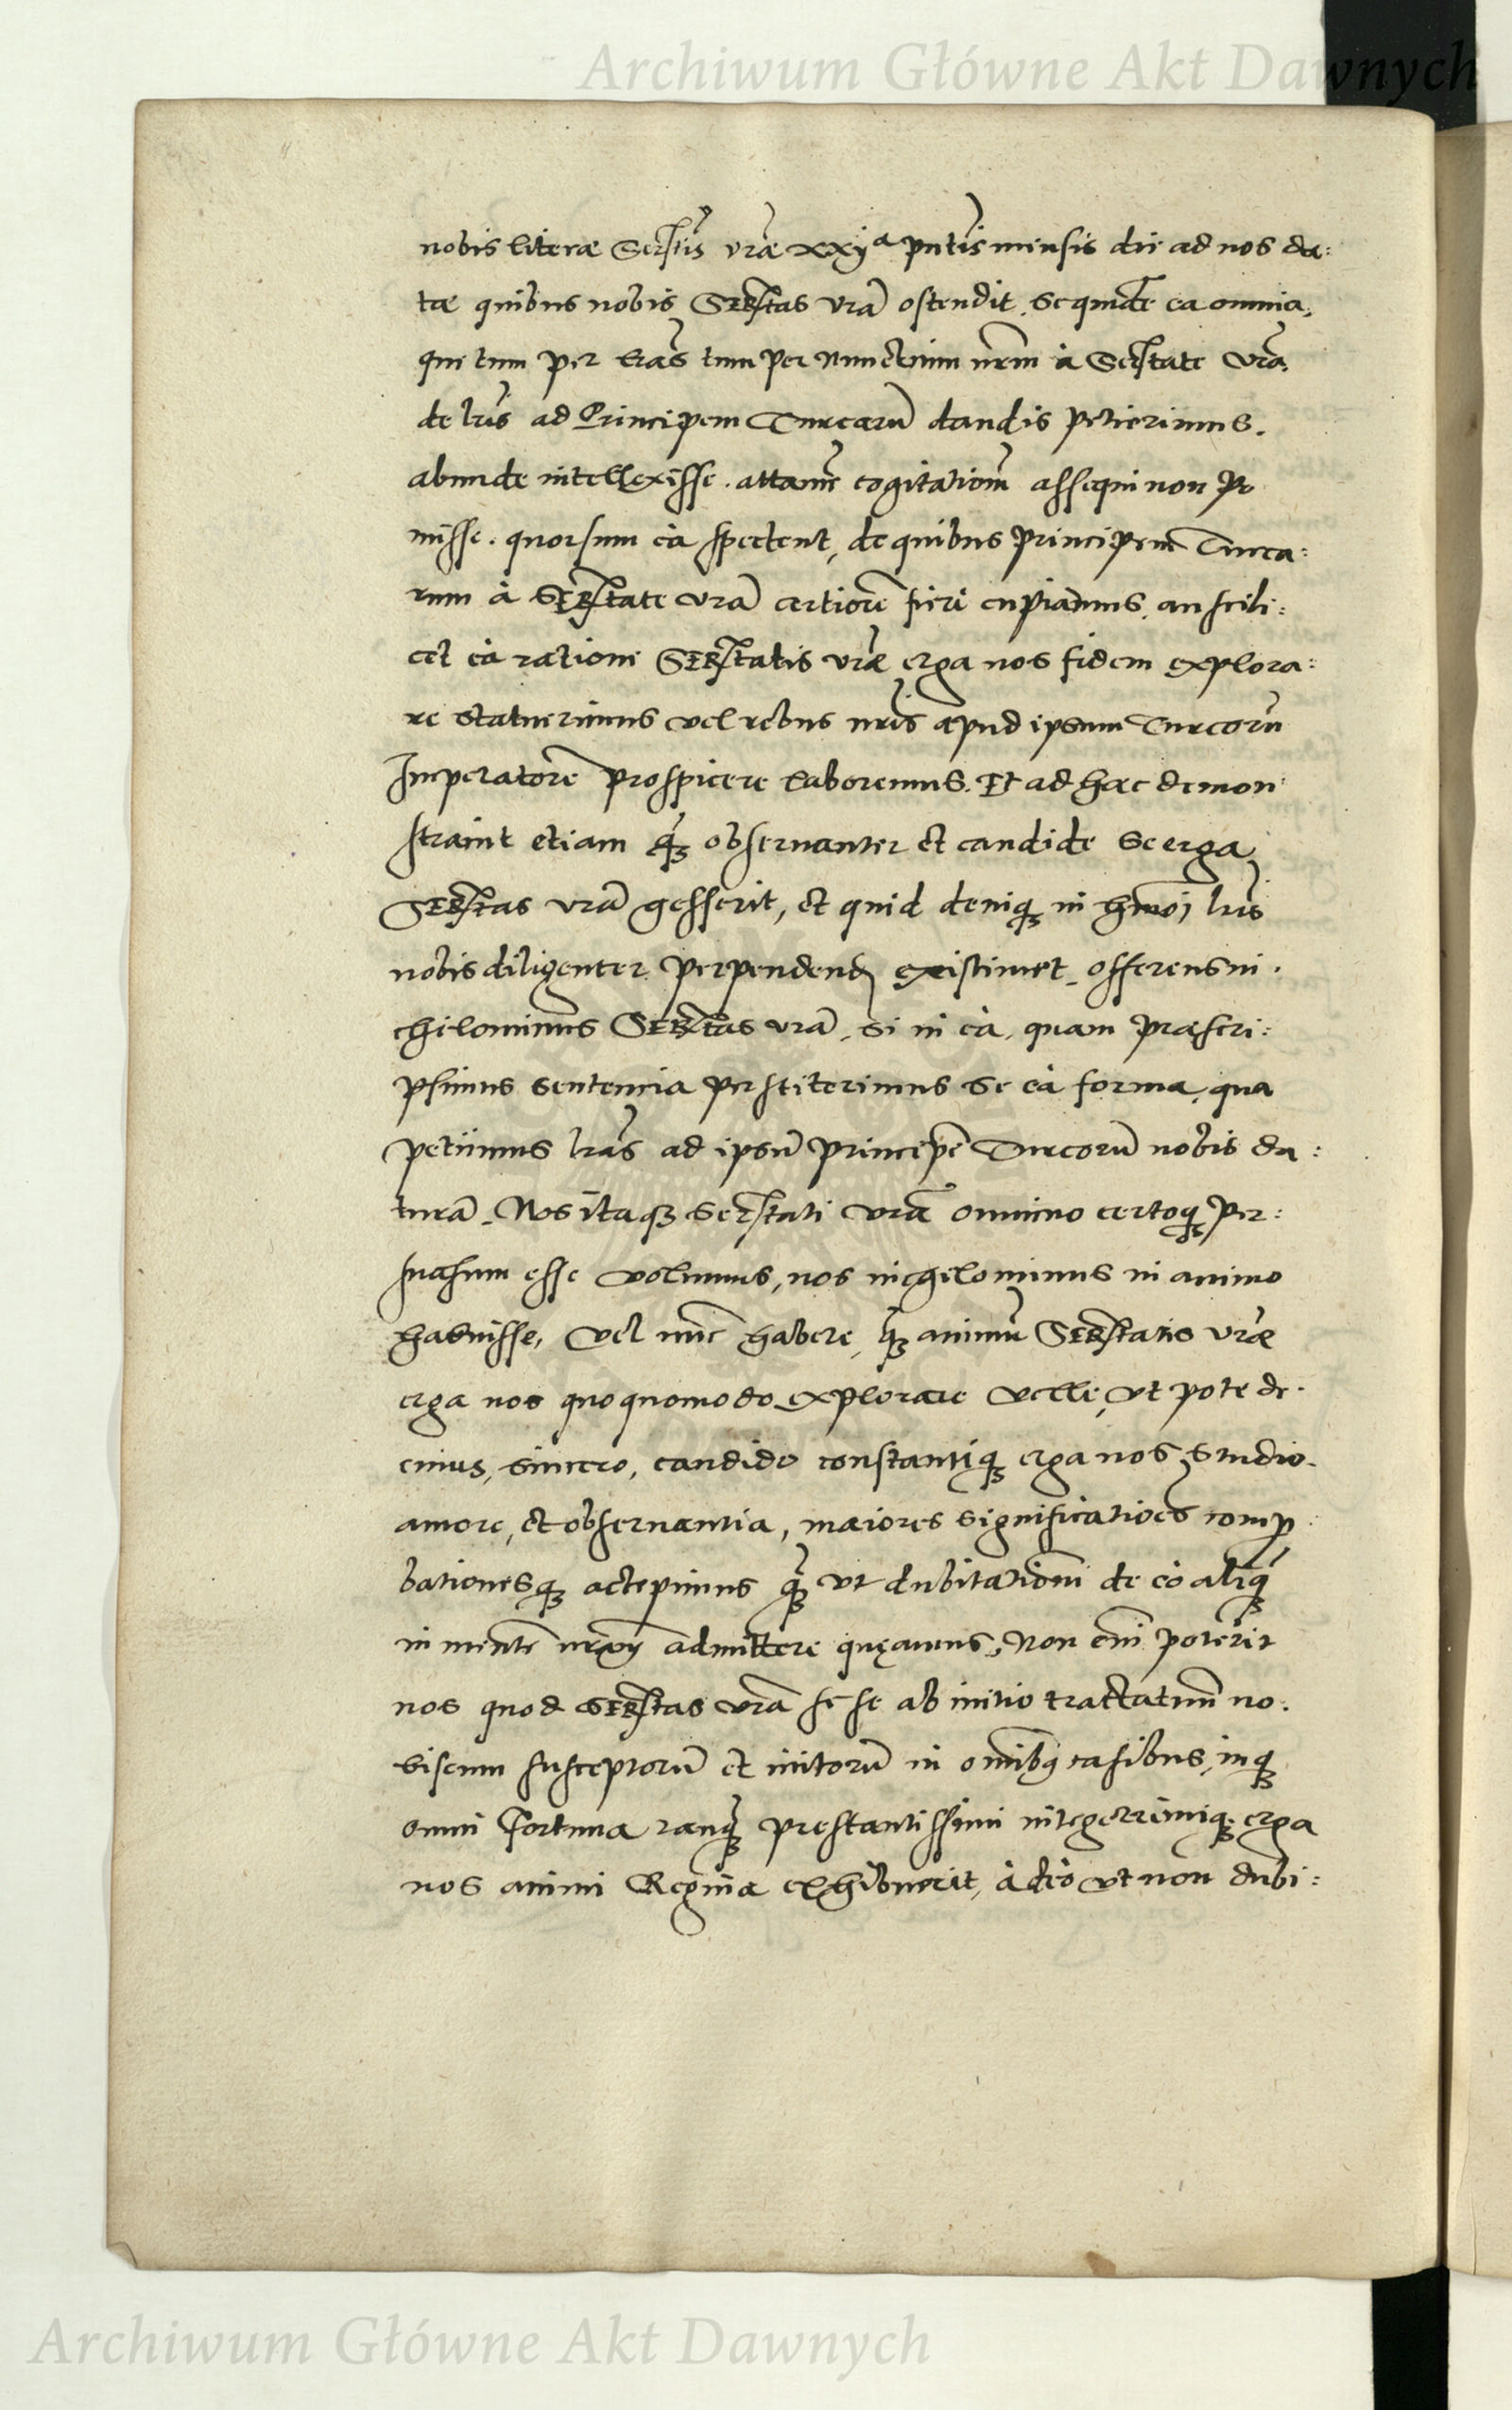 Archiwum Główne Akt Dawnych
nobis literæ Serstis vræ xxijª pntis mensis die ad nos da:
tæ quibus nobis Serstas vrã ostendit. Se quidẽ ea omnia,
que tum per lrãs tum per Nunctium nrm à Serstate vrã,
de lris ad Principem Turcarũ dandis petierimus.
abunde intellexisse. attamẽ cogitationẽ assequi non po
tuisse. quorsum ea spectent, de quibus principem Turca:
rum à Serstate vrã certiorẽ fieri cupiamus. an scili:
cet eà ratione Serstatis vræ erga nos fidem explora:
re statuerimus vel rebus nris apud ipsum Turcorũ
Imperatorẽ prospicere laboremus. Et ad hæc demon:
straint etiam q̃ʒ obseruanter et candide se erga
Serstas vrã gesserit, et quid deniqʒ in hmoi lris
nobis diligenter perpendend existimet. offerens ni:
chilominus Serstas vrã. si in eà, quam præscri:
psimus sentencia perstiterimus se eà forma, qua
petiimus lrãs ad ipsũ principẽ Turcorũ nobis da:
turã. Nos itaqʒ Serstati vræ omnino certoqʒ per:
suasum esse volumus, nos nichilominus in animo
habuisse, vel nũc habere, qʒ animũ Serstatis vræ
erga nos quoquomodo explorare velle, vt pote de.
cuius, sincero, candido constantiqʒ erga nos studio.
amore, et obseruantia, maiores significatioes comp
bationesqʒ accepimus q̃ʒ vt dubitationẽ de eo aliq̃ʒ
in mentẽ nrãm admittere queamus. Non eni poterit
nos quod Serstas vrã sese ab initio tractatuũ no:
biscum susceptorũ et initorũ in omnibʒ casibus, inqʒ
omni fortuna tanq̃ʒ prestantissimi integerrimiqʒ erga
nos animi Regina exhibuerit, àdeò vt non dubi:
Archiwum Główne Akt Dawnych